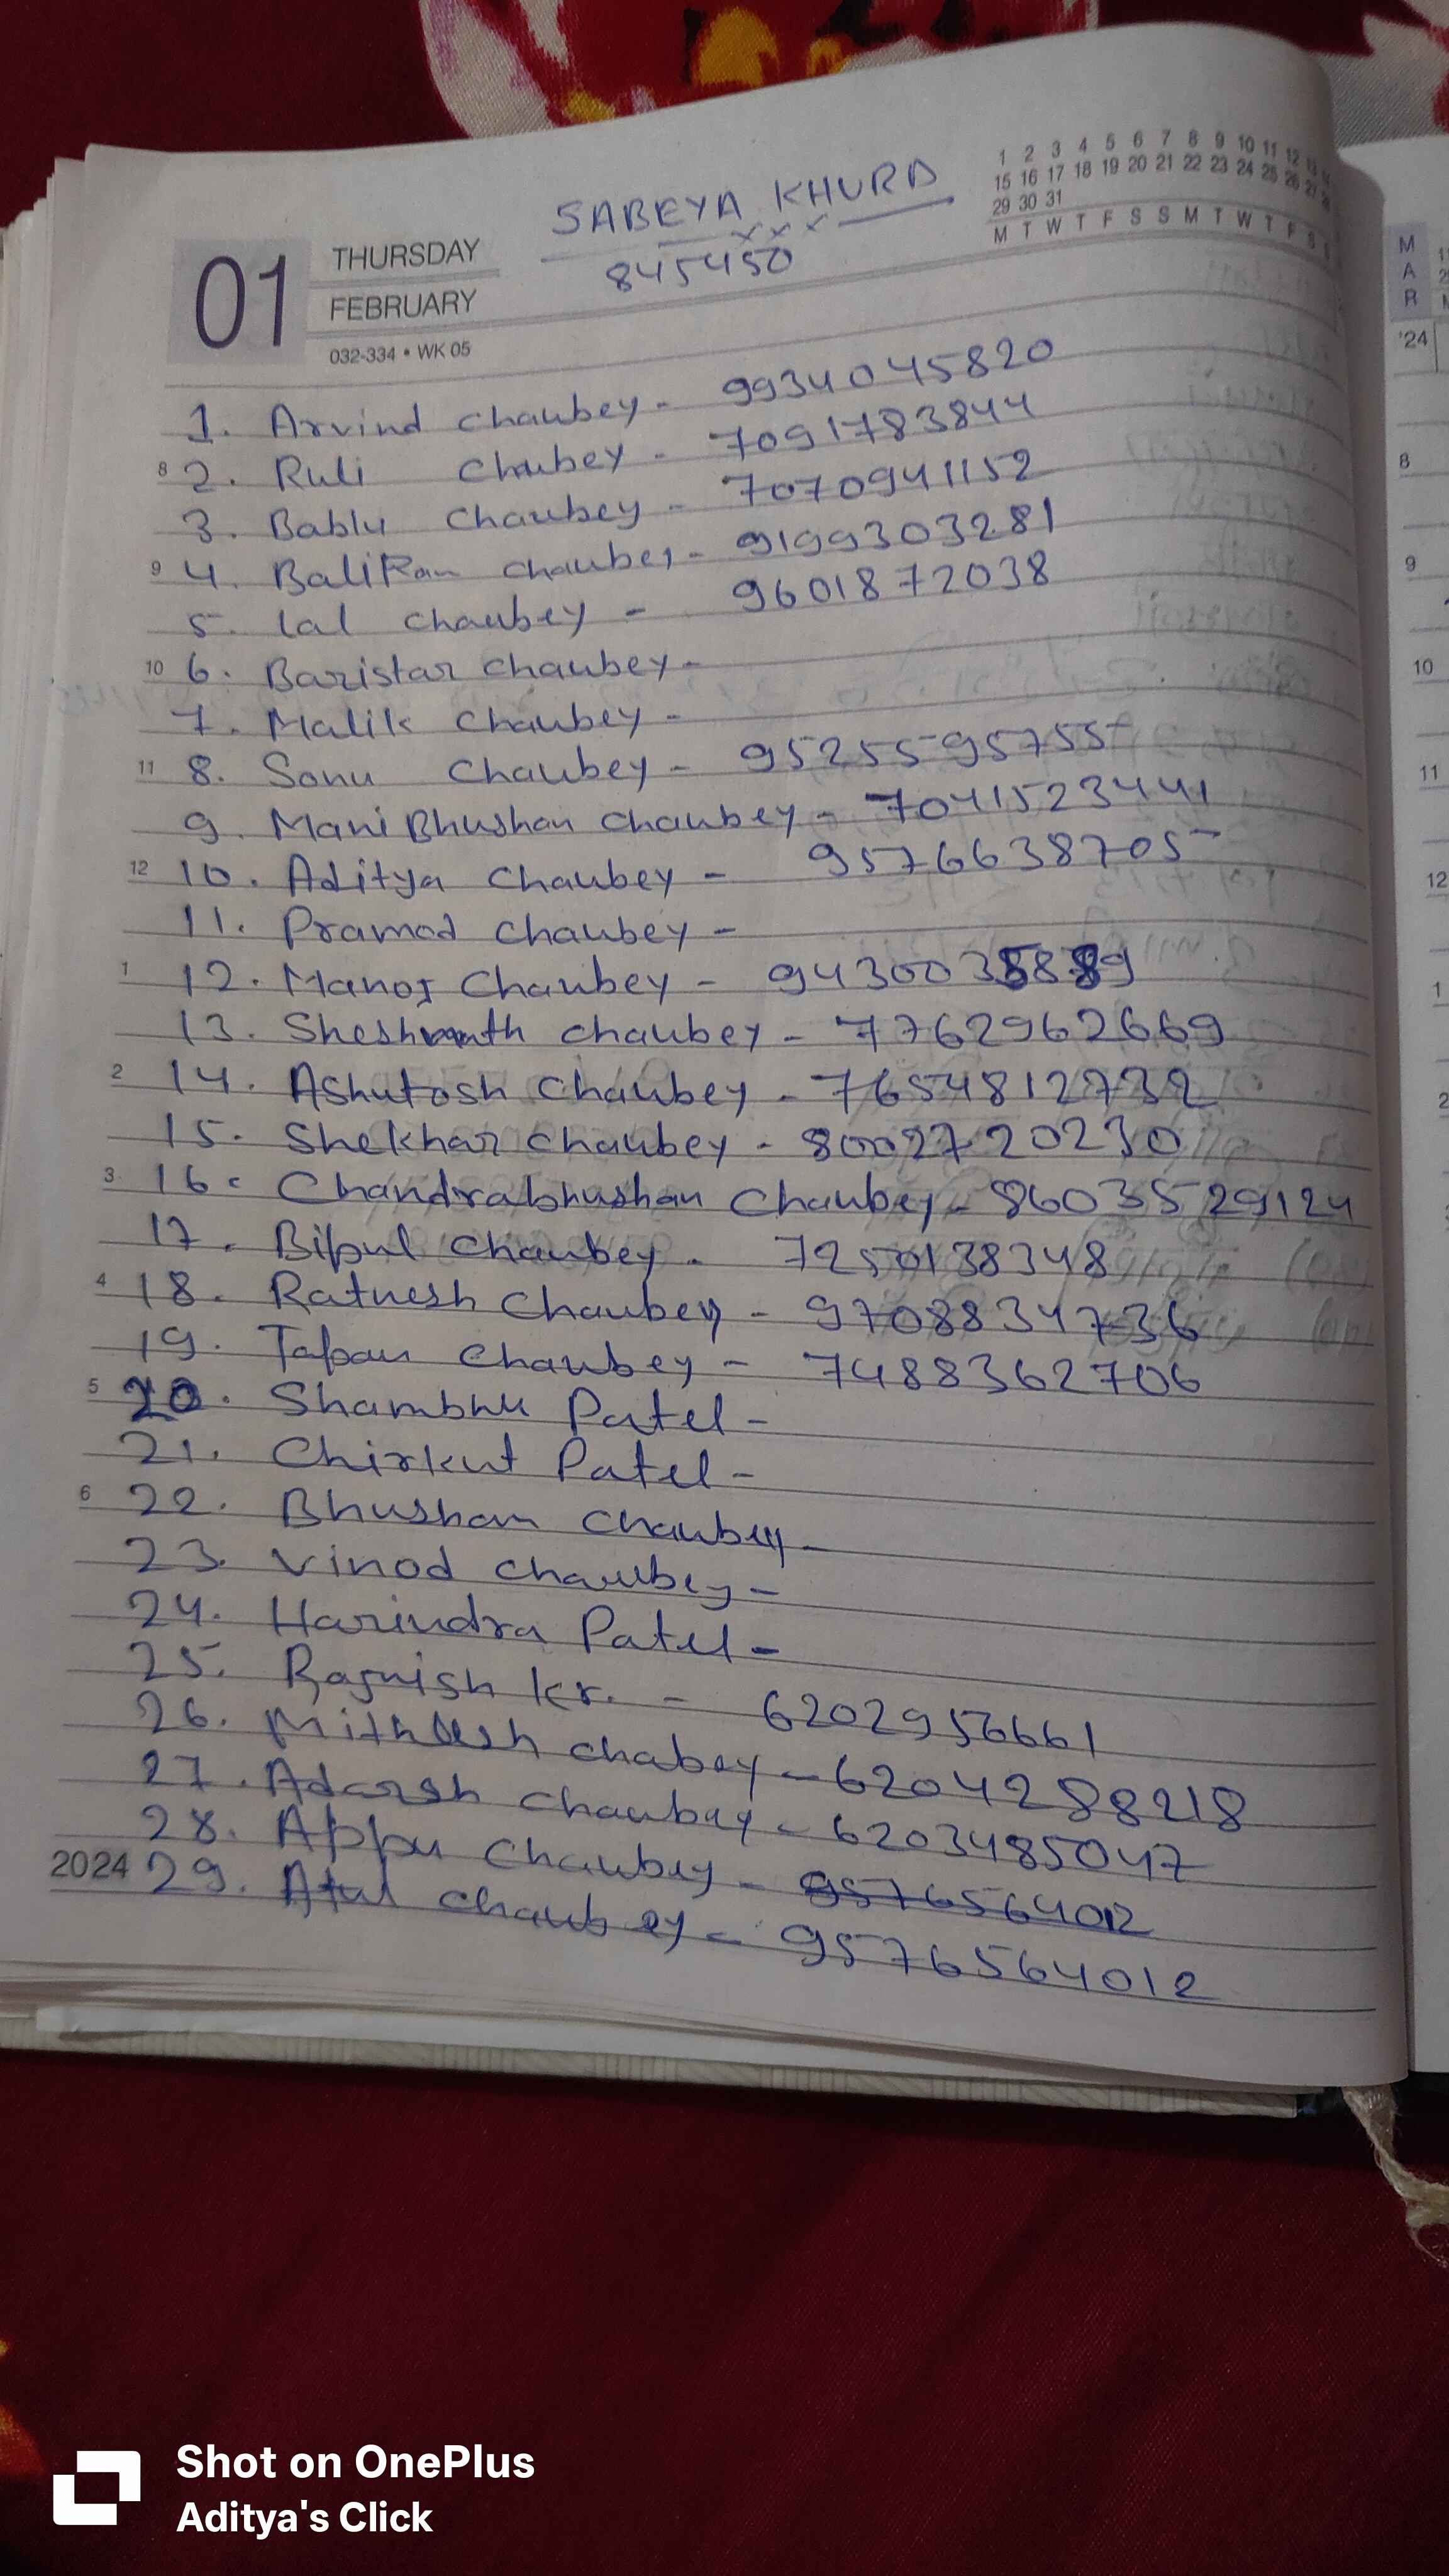 SABEYA KHURD
845450
01
THURSDAY
FEBRUARY
032-334 • WK 05
1 2 3 4 5 6 7 8 9 10 11 12 13 14
15 16 17 18 19 20 21 22 23 24 25 26 27 28
29 30 31
M T W T F S S M T W T F S S
1. Arvind Chaubey - 9934045820
8 2. Ruli Chubey - 7091783844
3. Bablu Chaubey - 7070941152
9 4. BaliRam Chaubey - 9199303281
5. lal chaubey - 9601872038
10 6. Baristar Chaubey -
7. Malik Chaubey -
11 8. Sonu Chaubey - 9525595755
9. Mani Bhushan Chaubey - 7041523441
12 10. Aditya Chaubey - 9576638705
11. Pramod Chaubey -
1 12. Manoj Chaubey -
13. Chaubey - 7762962669
2 14. Ashutosh Chaubey - 7654812732
15. Shekhar Chaubey - 8002720230
3 16. Chandrabhushan Chaubey - 8603529124
17. Bipul Chaubey - 7250138348
4 18. Ratnesh Chaubey - 9708834736
19. Tapan Chaubey - 7488362706
5 20. Shambhu Patel -
21. Chirkut Patel -
6 22. Bhushan Chaubey -
23. Vinod Chaubey -
24. Harindra Patel -
25. Rajnish kr. - 6202956661
26. Mithlesh chabey - 6204288218
27. Adarsh Chaubey - 6203485047
28. Appu Chaubey - 9576564012
2024 29. Atul Chaubey - 9576564012
M
A
R
'24
8
9
10
11
12
1
2
Shot on OnePlus
Aditya's Click